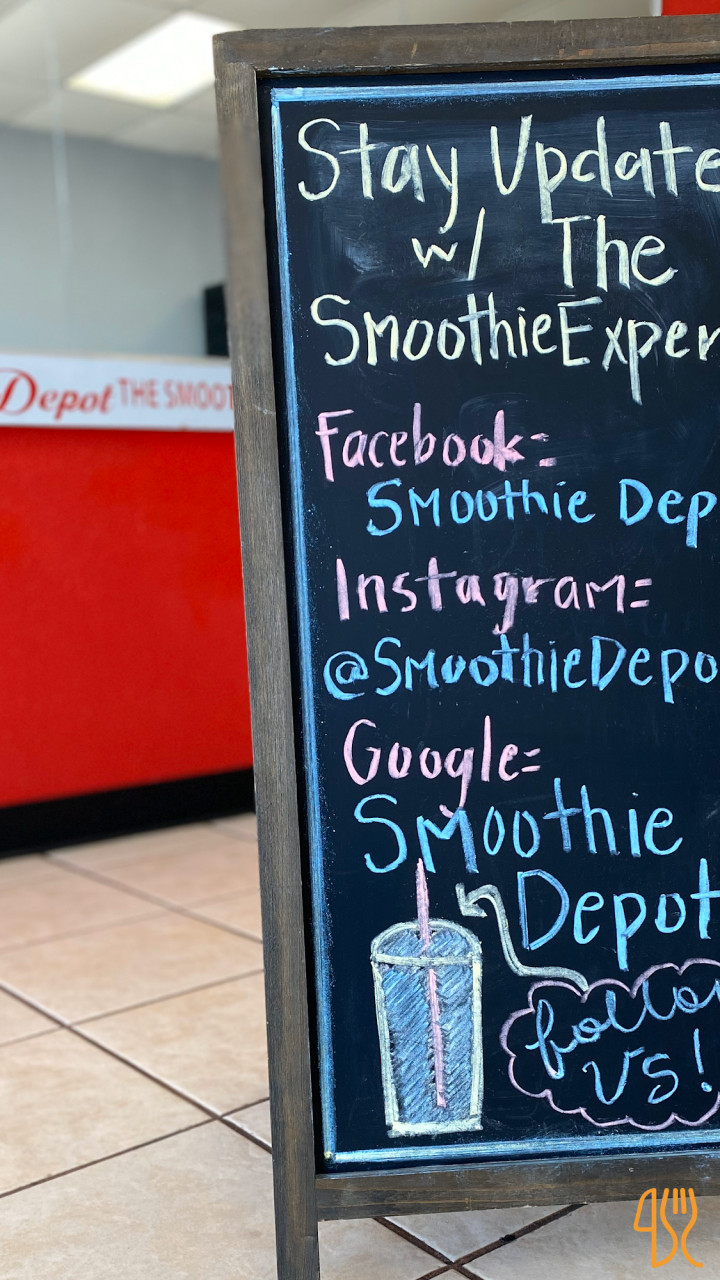 Stay Update
w/ The
SmoothieExper
Facebook:
Smoothie Dep
Instagram=
@SmoothieDepo
Google=
Smoothie
Depot
follow
US!
Depot THE SMOOT